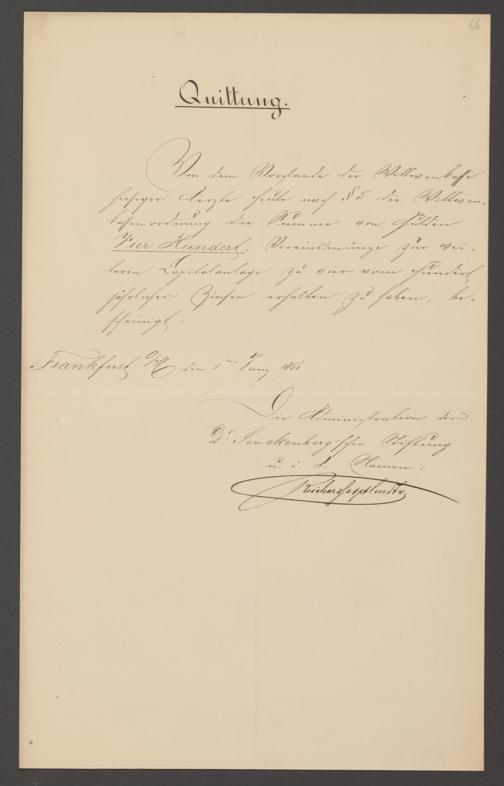 66
Quittung.
Von dem Vorstande der Wittwenkasse
hiesiger Aerzte heute nach § 5 der Wittwen-
kassenordnung die Summe von Gulden
Vier Hundert. Vereinsmünze zur wei-
teren Capitalanlage zu vier vom Hundert
jährlicher Zinsen erhalten zu haben, be-
scheinigt:
Frankfurt a/M den 1ten 1866
Die Administration der
Dr Senckenberg'schen Stiftung
u. i. d. Namen: